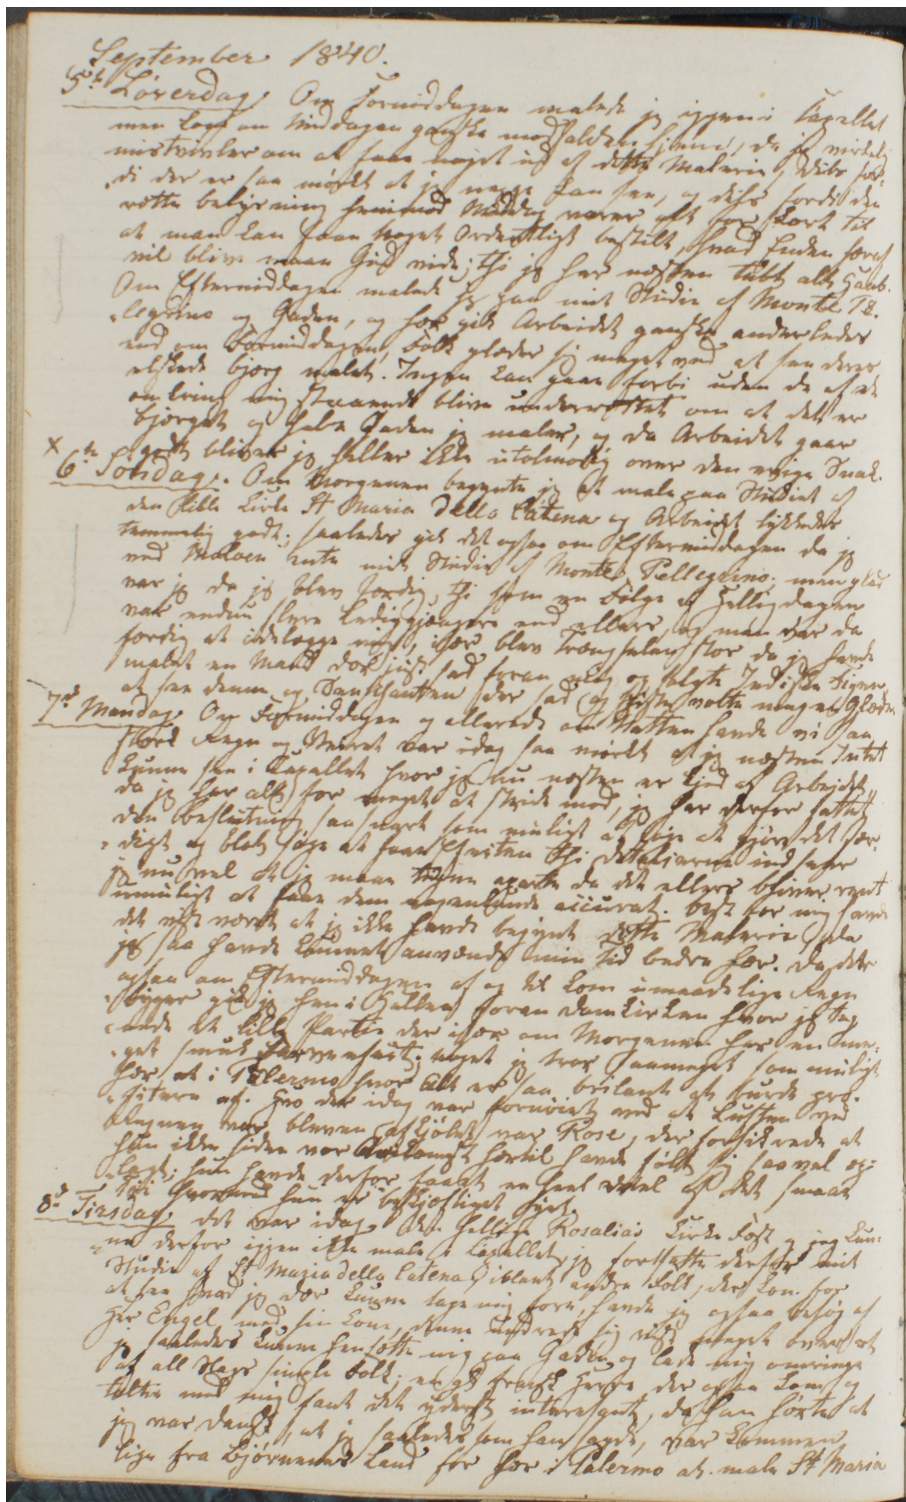 September 1840.
5te Löverdag. Om Formiddagen malede jeg igjen i Capellet
men kom om Middagen ganske modfalden hjem, da jeg virkelig
mistvivler om at faae noget ud af dette Malerie, deels for-
di der er saa mörkt at jeg neppe kan see, og deels fordi den
rette belysning henimod Middag varer alt for kort til
at man kan faae noget Ordentligt bestilt, hvad Enden heraf
vil blive maae Gud vide; thi jeg har næsten tabt alt Haab.
Om Eftermiddagen malede jeg paa mit Studie af Monte Pe-
legrino og Gaden, og her gik Arbeidet ganske anderledes
end om Formiddagen, Folk glæder sig meget ved at see deres
elskede bjerg malet. Ingen kan gaae forbi uden de af de
omkring mig staaende blive underrettet om at det er
bjerget og hele Gaden jeg maler, og da Arbeidet gaaer
godt bliver jeg heller ikke utolmodig over den evige Snak.
x
6te Söndag. Om Morgenen begyndte jeg at male paa Studiet af
den lille Kirke St Maria della Catena og Arbeidet lykkedes
temmelig godt; saaledes gik det ogsaa om Eftermiddagen da jeg
ved Moloen endte mit Studie af Monte Pellegrino; men glad
var jeg da jeg blev færdig, thi som en Fölge af Helligdagen
var endnu flere Lediggjængere end ellers, og man var da
færdig at ödelægge mig, især blev Trængselen stor da jeg havde
malet en Mand der just sad foran mig og solgte Indiske Figener,
at see denne og Tauskheden der sad og fiskede vakte megen Glæde.
7de Mandag. Om Formiddagen og allerede om Natten havde vi saa
stærk Regn og Veiret var idag saa mörkt at jeg næsten Intet
kunne see i Capellet hvor jeg nu næsten er kjed af Arbeidet,
da jeg har alt for meget at stride mod, jeg har derfor fattet
den beslutning saa snart som muligt at söge at gjöre det fær-
digt og blot söge at faae Effecten thi Detaljerne indseer
jeg nu vel at jeg maae tegne aparte da det ellers bliver reent
umuligt at faae dem nogenlunde accurat. Best for mig havde
det vist været at jeg ikke havde begynt dette Malerie, da
jeg saa havde kunnet anvende min Tid bedre her. Da det
ogsaa om Eftermiddagen af og til kom umaadelige Regn
byger gik jeg hen i Hallen foran Domkirken hvor jeg teg
nede et lille Partie der især om Morgenen har en me-
get smuk Farveeffect; noget jeg troer saameget som muligt
her i Palermo hvor Alt er saa brilant at burde pro-
fitere af. Hvo der idag var fornöiet ved at Luften ved
Regnen var bleven afkjölet var Rose, der forsikrede at
hun ikke siden vor Ankomst hertil havde fölt sig saa vel op-
lagt; hun havde derfor faaet en heel deel af det smaae
Töi hvormed hun er beskjeftiget syet.
8de Tirsdag. Det var idag den hellige Rosalias Kirke Fest og jeg kun-
ne derfor igjen ikke male i Capellet, jeg fortsatte derfor mit
Studie af St Maria della Catena. Iblandt andre Folk, der kom for
at see hvad jeg der kunne tage mig for, havde jeg ogsaa besög af
Hr Engel med sin Kone, denne undrede sig ret meget over at
jeg saaledes kunne hensætte mig paa Gaden og lade mig omringe
af all Slags simple Folk; en gl fransk Herre der ogsaa kom og
talte med mig fant det yderst interessant, da han hörte at
jeg var dansk, at jeg saaledes som han sagde, var kommen
lige fra Björnenes Land for her i Palermo at male St Maria